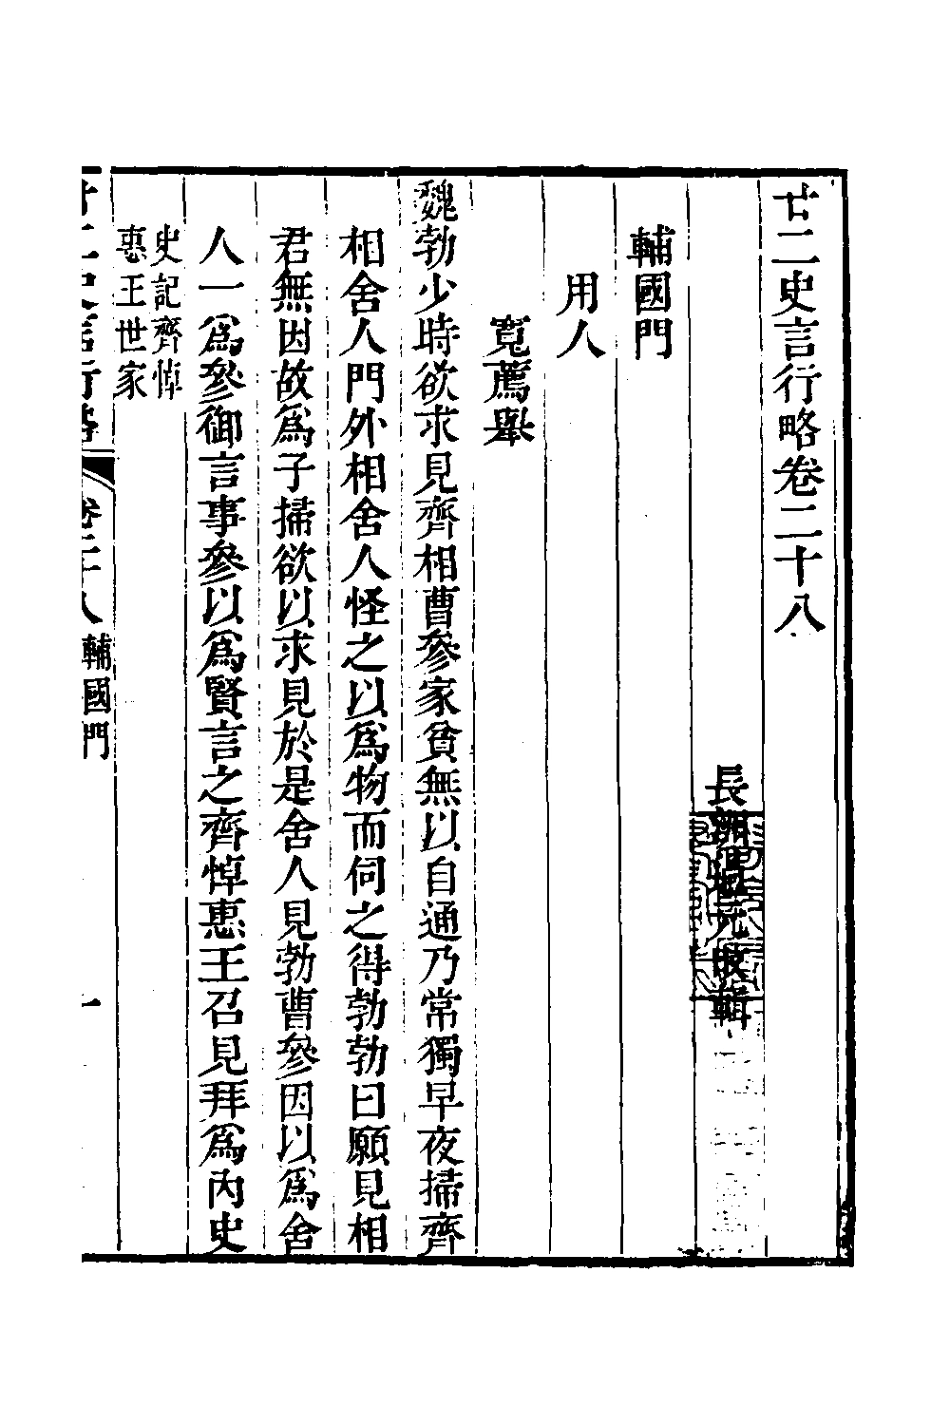 廿二史言行略卷二十八
長 過元旼輯
輔國門
用人
寬薦舉
魏勃少時欲求見齊相曹參家貧無以自通乃常獨早夜掃齊
相舍人門外相舍人怪之以爲物而伺之得勃勃曰願見相
君無因故爲子掃欲以求見於是舍人見勃曹參因以爲舍
人一爲參御言事參以爲賢言之齊悼惠王召見拜爲內史
史記齊悼
惠王世家
廿二史言行略 卷二十八 輔國門 一